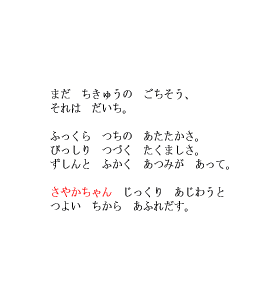 まだ　ちきゅうの　ごちそう、
それは　だいち。

ふっくら　つちの　あたたかさ。
びっしり　つづく　たくましさ。
ずしんと　ふかく　あつみが　あって。

さやかちゃん　じっくり　あじわうと
つよい　ちから　あふれだす。